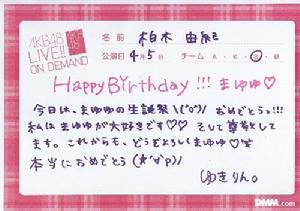 AKB48
LIVE!!
ON DEMAND
AKB48
名前 柏木 由紀
公演日 4月5日 チーム A・K・B・
Happy Birthday!!! まゆゆ♡
今日は、まゆゆの生誕祭\(^o^)/ おめでとぅ!!!
私はまゆゆが大好きです♡♡ そして尊敬してま
す。これからも、どうぞよろしくまゆゆ♡
本当におめでとう(*'∀'p)/
ゆきりん。
DMM.com